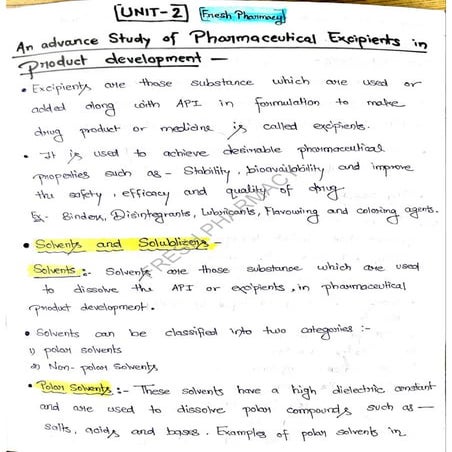 UNIT-2 Fresh Pharmacy
An advance Study of Pharmaceutical Excipients in
Product development -
• Excipients are those substance which are used or
added along with API in formulation to make
drug product or medicine is called excipients.
• It is used to achieve desirable pharmaceutical
properties such as - Stability, bioavailability and improve
the safety, efficacy and quality of drug.
Ex- Binders, Disintegrants, Lubricants, Flavouring and coloring agents.
• Solvents and Solublizers -
Solvents :- Solvents are those substance which are used
to dissolve the API or excipients, in pharmaceutical
product development.
• Solvents can be classified into two categories :-
1) polar solvents
2) Non-polar solvents
• Polar Solvents :- These solvents have a high dielectric constant
and are used to dissolve polar compounds such as -
salts, acids and bases. Examples of polar solvents in
FRESH PHARMACY